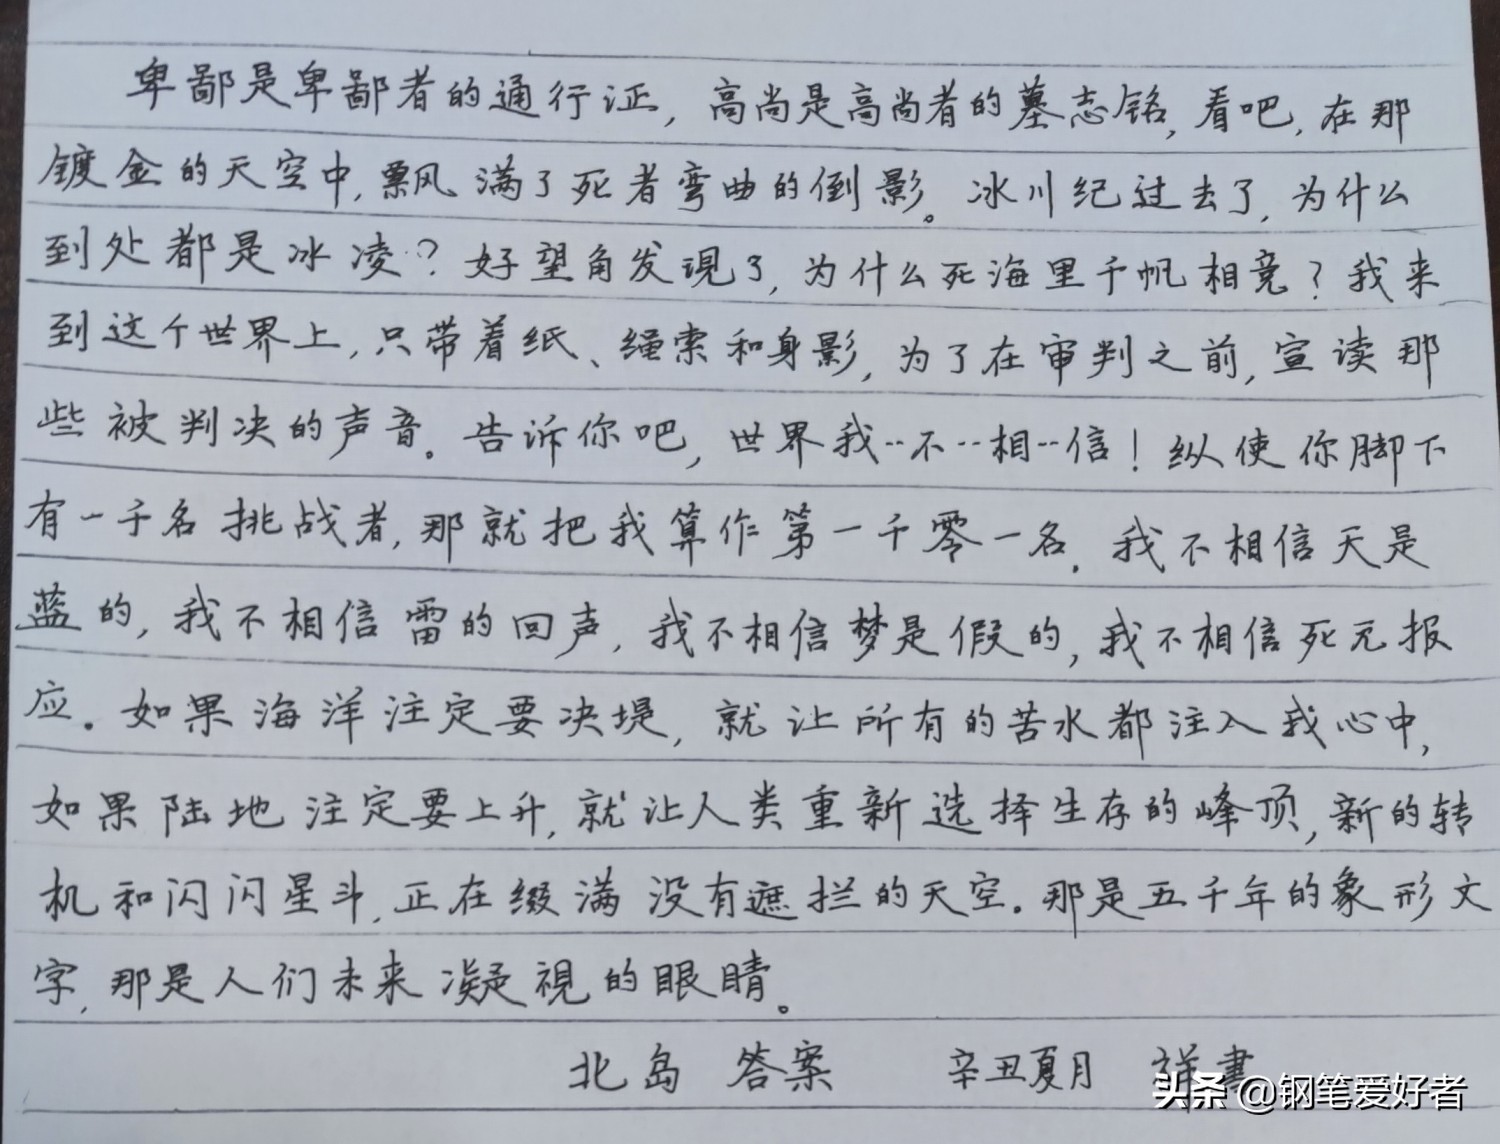 卑鄙是卑鄙者的通行证，高尚是高尚者的墓志铭，看吧，在那
镀金的天空中，飘满了死者弯曲的倒影。冰川纪过去了，为什么
到处都是冰凌？好望角发现了，为什么死海里千帆相竞？我来
到这个世界上，只带着纸、绳索和身影，为了在审判之前，宣读那
些被判决的声音。告诉你吧，世界我··不··相··信！纵使你脚下
有一千名挑战者，那就把我算作第一千零一名。我不相信天是
蓝的，我不相信雷的回声，我不相信梦是假的，我不相信死无报
应。如果海洋注定要决堤，就让所有的苦水都注入我心中，
如果陆地注定要上升，就让人类重新选择生存的峰顶，新的转
机和闪闪星斗，正在缀满没有遮拦的天空。那是五千年的象形文
字，那是人们未来凝視的眼睛。
北岛 答案 辛丑夏月 祥書
头条 @钢笔爱好者